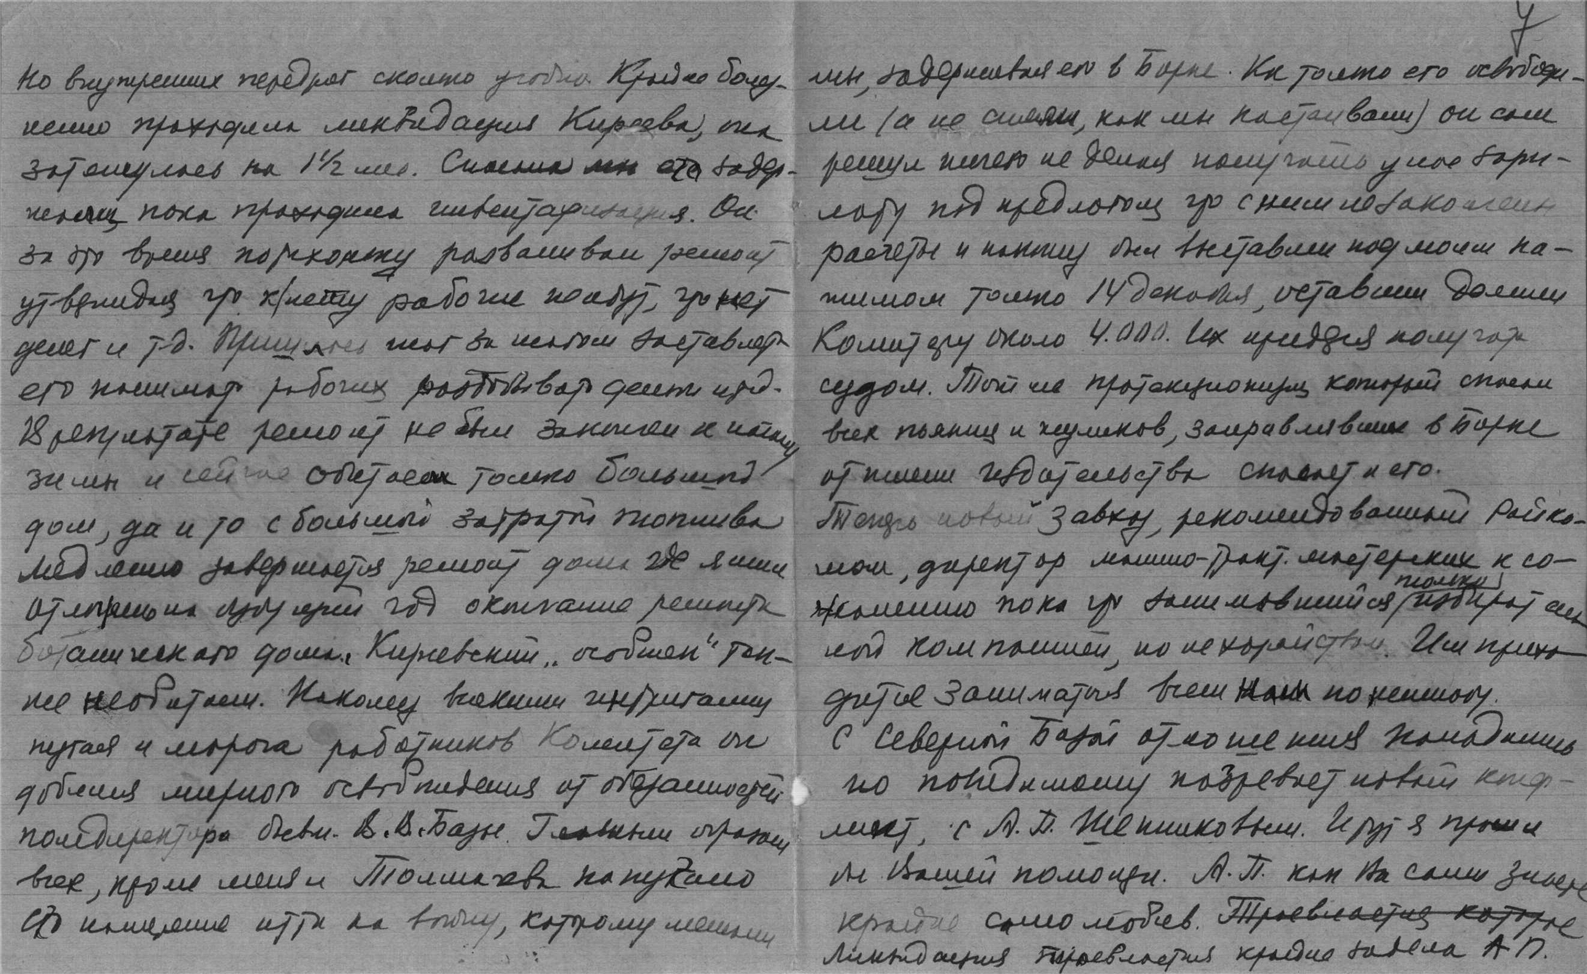 Но внутренних передряг сколько угодно. Крайне болез-
ненно проходила ликвидация Киреева, она
затянулась на 1½ мес. Сначала мы его задер-
жали пока проходила инвентаризация. Он
за это время потихоньку разваливал ремонт
утверждая что к нему рабочие не идут, что нет
денег и т.д. Пришлось шаг за шагом заставлять
его нанимать рабочих, деньги
В результате ремонт не был закончен к началу
зимы и сейчас обитаем только большой
дом, да и то с большой затратой топлива
Медленно завершается ремонт дома где я жил
на будущий год окончание ремонта
ботанического дома. Киреевский „особняк" так-
же необитаем. Наконец всякими интригами
пугая и мороча работников Комитета он
добился мирного освобождения от обязанностей
помдиректора В.В.Базы. Главным образом
всех, кроме меня и Толмачева напугало
его намерение итти на войну, которому мешали
7
мы, задерживая его в Борке. Как только его освободи-
ли (а не сняли, как мы настаивали) он сам
решил ничего не делая получать у нас зарп-
лату под предлогом что с ним не закончены
расчеты и наконец был выставлен под моим на-
жимом только 14 декабря, оставшись должен
Комитету около 4.000. Их придется получать
судом. Тот же протекционизм который спасал
всех пьяниц и жуликов, заправлявших в Борке
от имени издательства спасает и его.
Теперь новый завхоз, рекомендованный Райко-
мом, директор машино-тракт. мастерских к со-
жалению пока что занимавшийся только избират ель
ной компанией, но не хозяйством. Им прихо
дится заниматься всем нам понемногу.
С Северной Базой отношения наладились
но повидимому назревает новый конф-
ликт, с А.П. Шенниковым. И тут я просил
бы Вашей помощи. А.П. как Вы сами знаете
крайне самолюбив. Троевластия которое
Ликвидация троевластия крайне задела А.П.